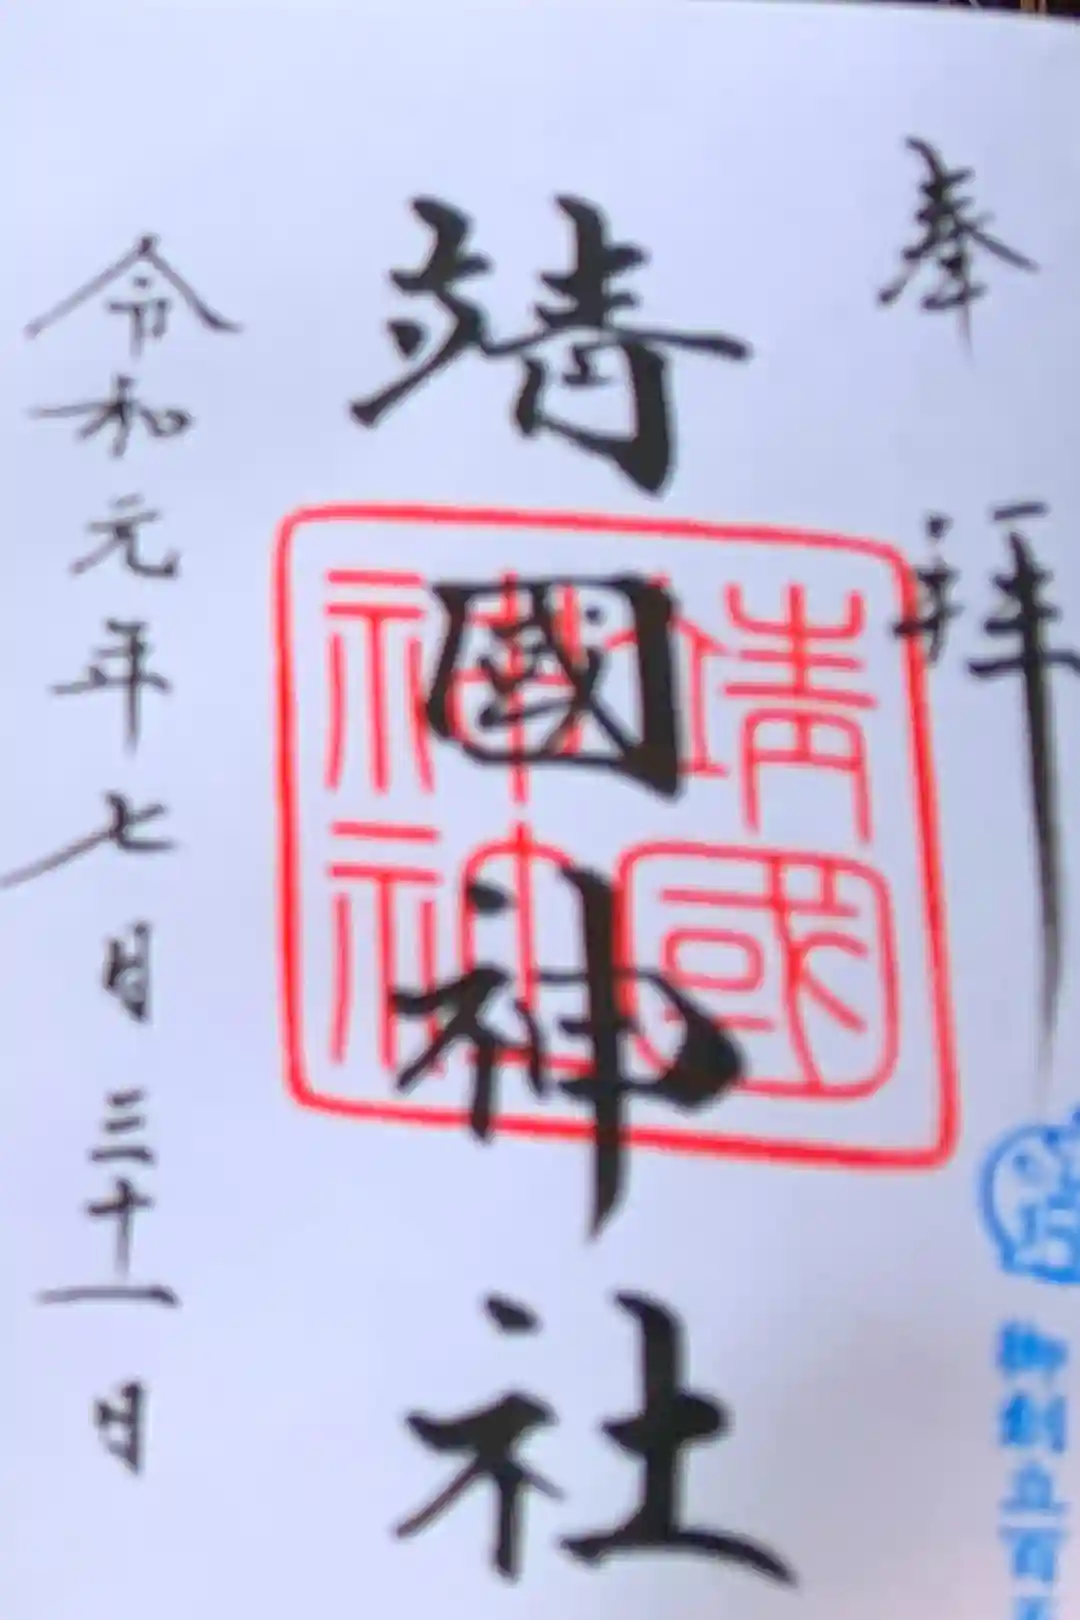 奉拝
靖國神社
靖國
神社
令和元年七月三十一日
御創立百